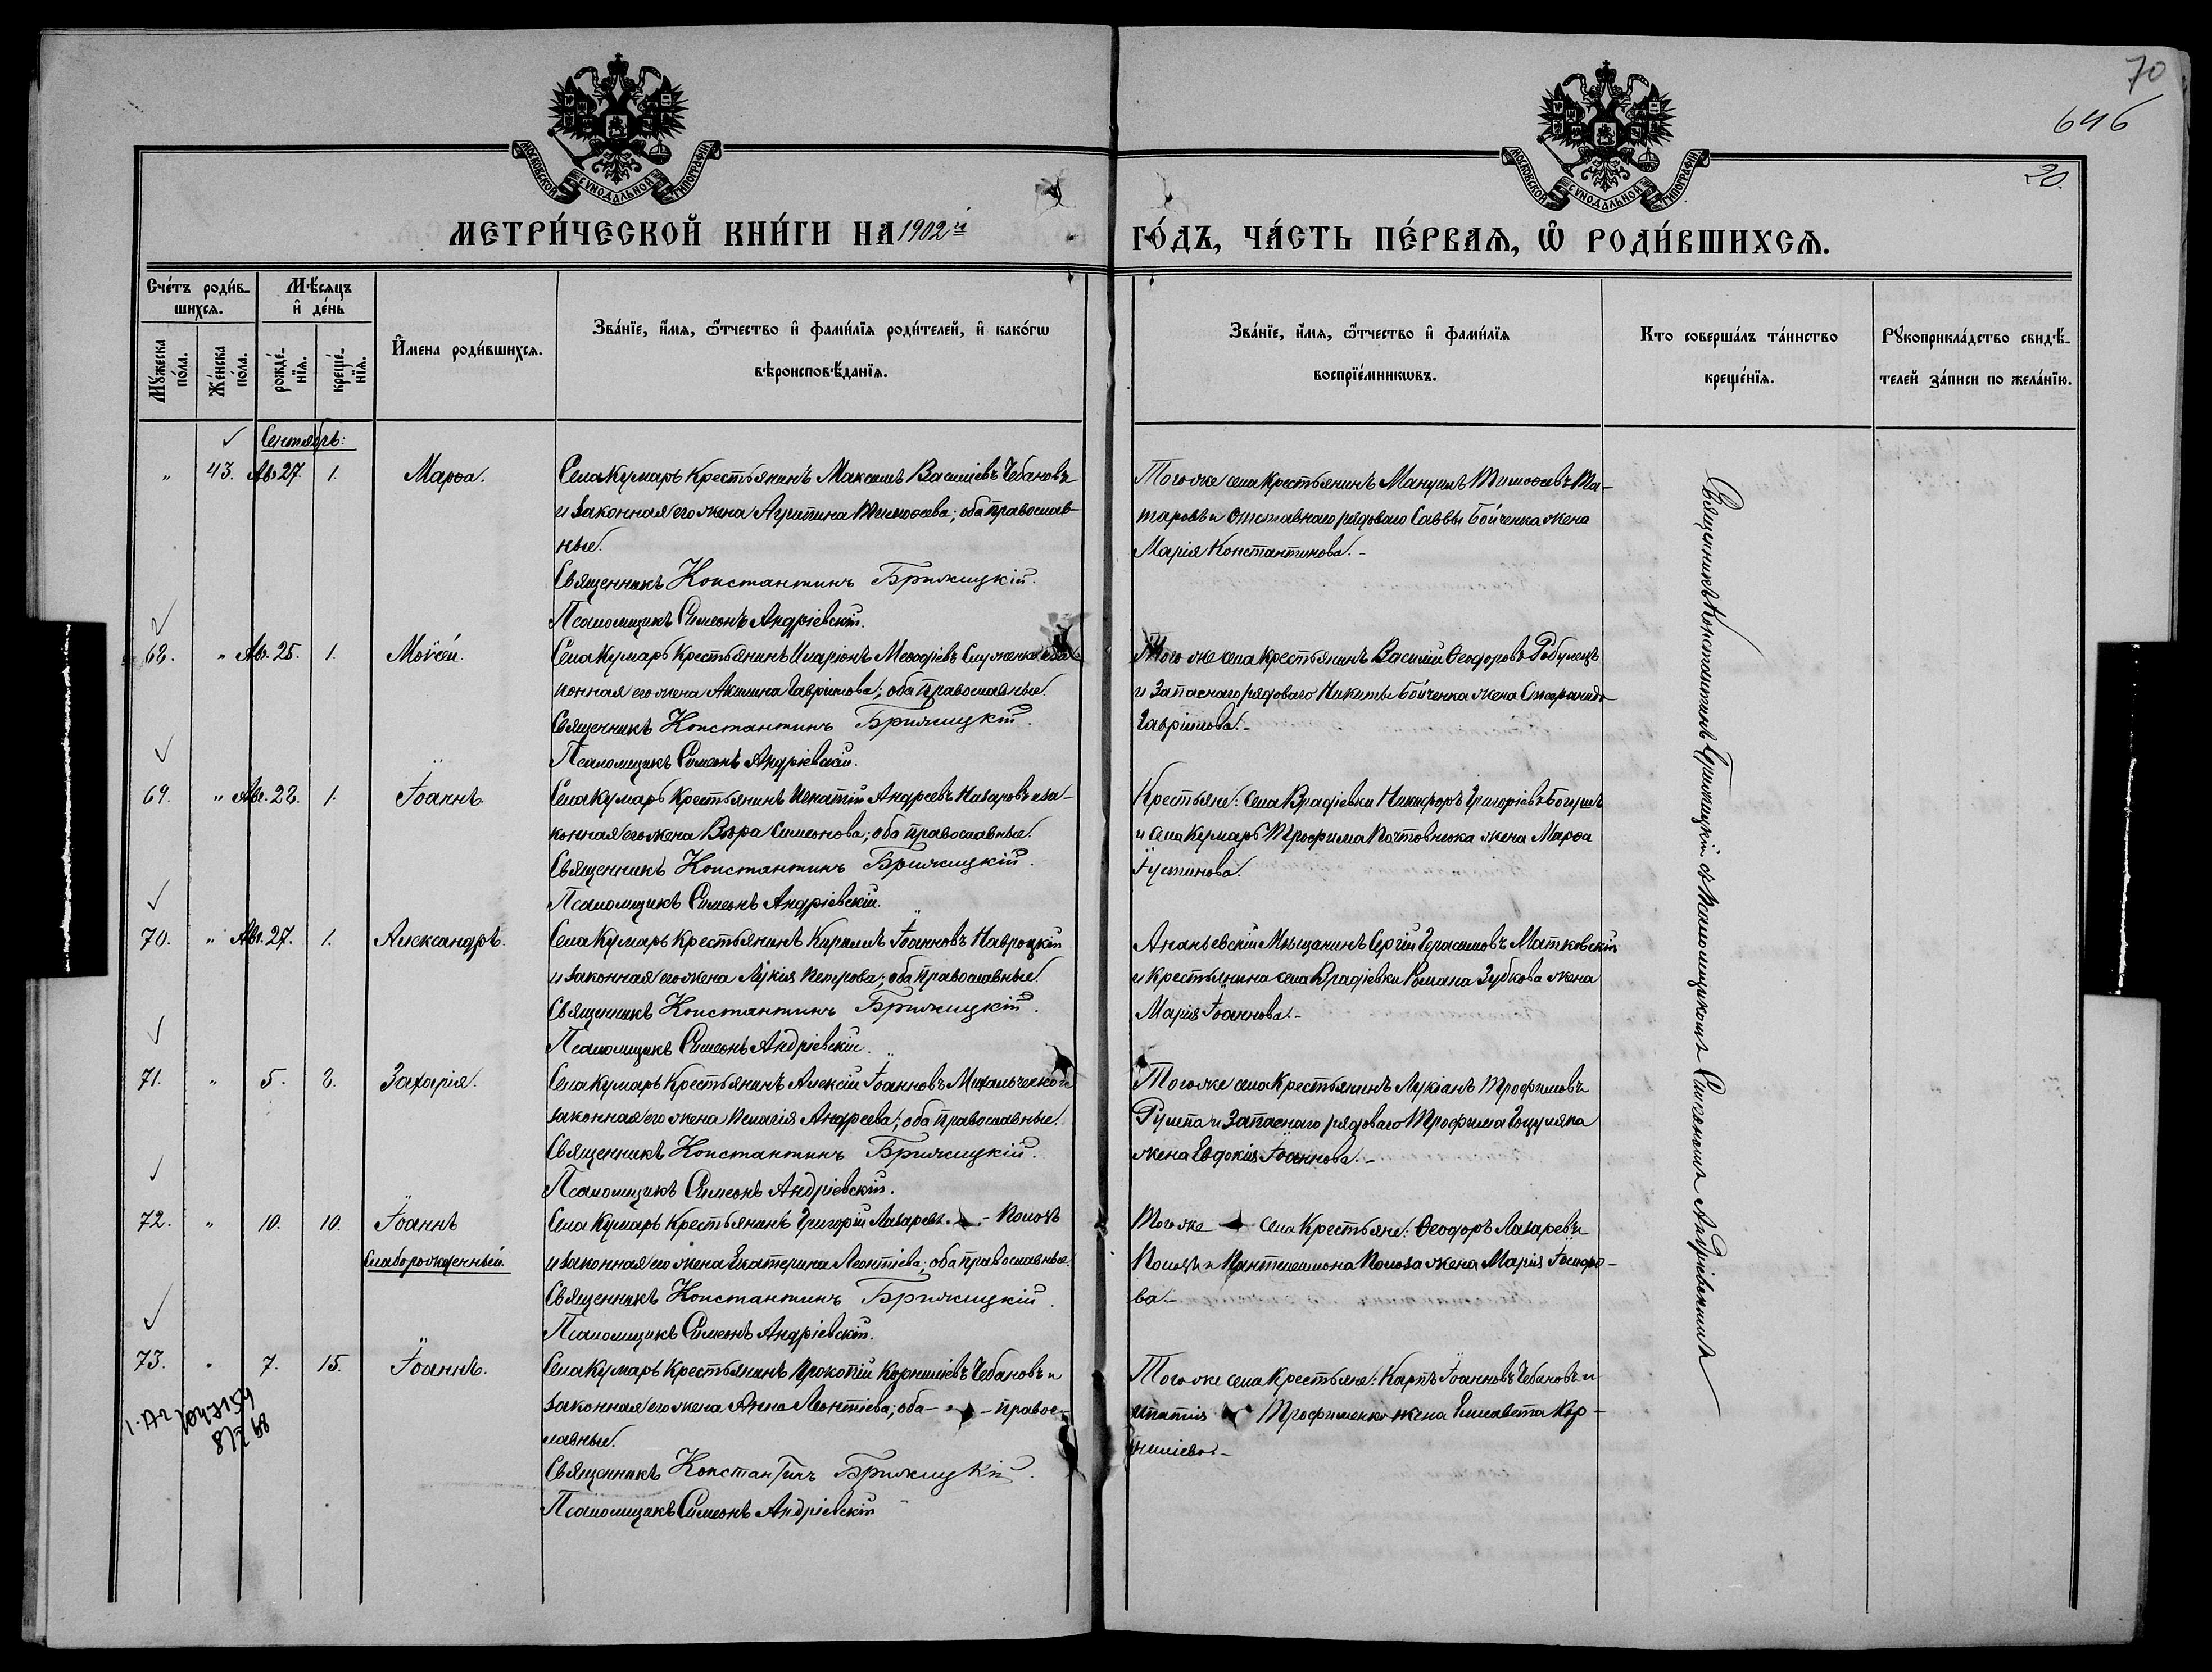 70
646
20.
МОСКОВСКОЙ СѴНОДАЛЬНОЙ ТИПОГРАФІИ.
МОСКОВСКОЙ СѴНОДАЛЬНОЙ ТИПОГРАФІИ.
МЕТРИ́ЧЕСКОЙ КНИ́ГИ НА 1902й ГО́ДЪ, ЧА́СТЬ ПЕ́РВАѦ, Ѡ҆ РОДИ́ВШИХСѦ.
Сче́тъ роди́в-
шихсѧ.
Мꙋ́жеска по́ла.
Же́нска по́ла.
Мѣ́сѧцъ
и҆ де́нь
рожде́-
нїѧ.
креще́-
нїѧ.
И҆мена роди́вшихсѧ.
Зва́нїе, и҆́мѧ, ѻ҆́тчество и҆ фами́лїѧ роди́телей, и҆ како́гѡ
вѣроисповѣ́данїѧ.
Зва́нїе, и҆́мѧ, ѻ҆́тчество и҆ фами́лїѧ
воспрїе́мникѡвъ.
Кто соверша́лъ та́инство
креще́нїѧ.
Рꙋкоприкла́дство свидѣ́-
телей за́писи по жела́нїю.
Сентябрь:
" 43. Ав. 27. 1. Марѳа.
Села Кумарь Крестьянинъ Максимъ Василіевъ Чебановъ
и законная его жена Агрипина Тимоѳеева; оба православ-
ные.
Священникъ Константинъ Брижицкій.
Псаломщикъ Симеонъ Андріевскій.
Того же села крестьянинъ Мануилъ Тимоѳеевъ Та-
таровъ и Отставного рядоваго Саввы Бойченка жена
Марія Константинова.-
68. " Ав. 25. 1. Моѵсей.
Села Кумарь Крестьянинъ Иларіонъ Меѳодіевъ Служенко и за-
конная его жена Акилина Гавріилова; оба православные.
Священникъ Константинъ Брижицкій.
Псаломщикъ Симеонъ Андріевскій.
Того же села крестьянинъ Василій Ѳеодоровъ
и Запаснаго рядоваго Никиты Бойченка жена
Гавріилова.-
69. " Авг. 28. 1. Іоаннъ
Села Кумарь Крестьянинъ Игнатій Андреевъ Назаровъ и за-
конная его жена Вѣра Симеонова; оба православные.
Священникъ Константинъ Брижицкій.
Псаломщикъ Симеонъ Андріевскій.
Крестьяне: села Врадіевки Никифоръ Григоріевъ
и села Кумарь Трофима жена Марѳа
Іустинова.
70. " Авг. 27. 1. Александръ.
Села Кумарь Крестьянинъ Кириллъ Іоанновъ Навроцкій
и законная его жена Лукія Петрова; оба православные.
Священникъ Константинъ Брижицкій.
Псаломщикъ Симеонъ Андріевскій.
Ананьевскій Мѣщанинъ Сергій Герасимовъ Матковскій
и крестьянина села Врадіевки Романа Зубкова жена
Марія Іоаннова.-
71. " 5. 8. Захарія.
Села Кумарь Крестьянинъ Алексій Іоанновъ Михальченко и
законная его жена Пелагія Андреева; оба православные.
Священникъ Константинъ Брижицкій.
Псаломщикъ Симеонъ Андріевскій.
Того же села Крестьянинъ Лукіанъ Трофимовъ
и Запаснаго рядоваго Трофима Гоцуляка
жена Евдокія Іоаннова.-
72. " 10. 10. Іоаннъ
Слаборожденный.
Села Кумарь Крестьянинъ Григорій Лазаревъ - Попозъ
и законная его жена Екатерина Леонтіева; оба православные.
Священникъ Константинъ Брижицкій.
Псаломщикъ Симеонъ Андріевскій.
Того же села Крестьяне: Ѳеодоръ Лазаревъ
и Пантелеимона жена Марія Іосифо-
ва.-
73. " 7. 15. Іоаннъ.
Села Кумарь Крестьянинъ Прокопій Корниліевъ Чебановъ и
законная его жена Анна Леонтіева; оба - - правос-
лавные.
Священникъ Константинъ Брижицкій.
Псаломщикъ Симеонъ Андріевскій
Того же села крестьяне: Карпъ Іоанновъ Чебановъ и
Ипатія Трофименко жена Елисавета Кор-
ниліева.-
Священникъ Константинъ Брижицкій съ Псаломщикомъ Симеономъ Андріевскимъ